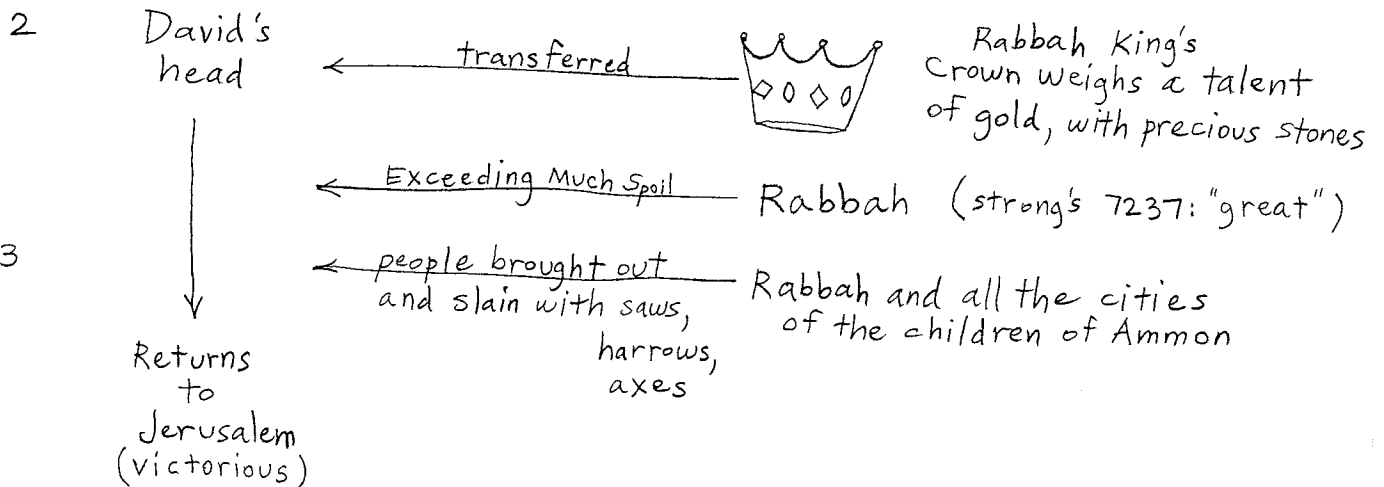 2
David's
head
transferred
Rabbah King's
Crown weighs a talent
of gold, with precious stones
Exceeding Much Spoil
Rabbah (strong's 7237: "great")
3
people brought out
and slain with saws,
harrows,
axes
Rabbah and all the cities
of the children of Ammon
Returns
to
Jerusalem
(victorious)